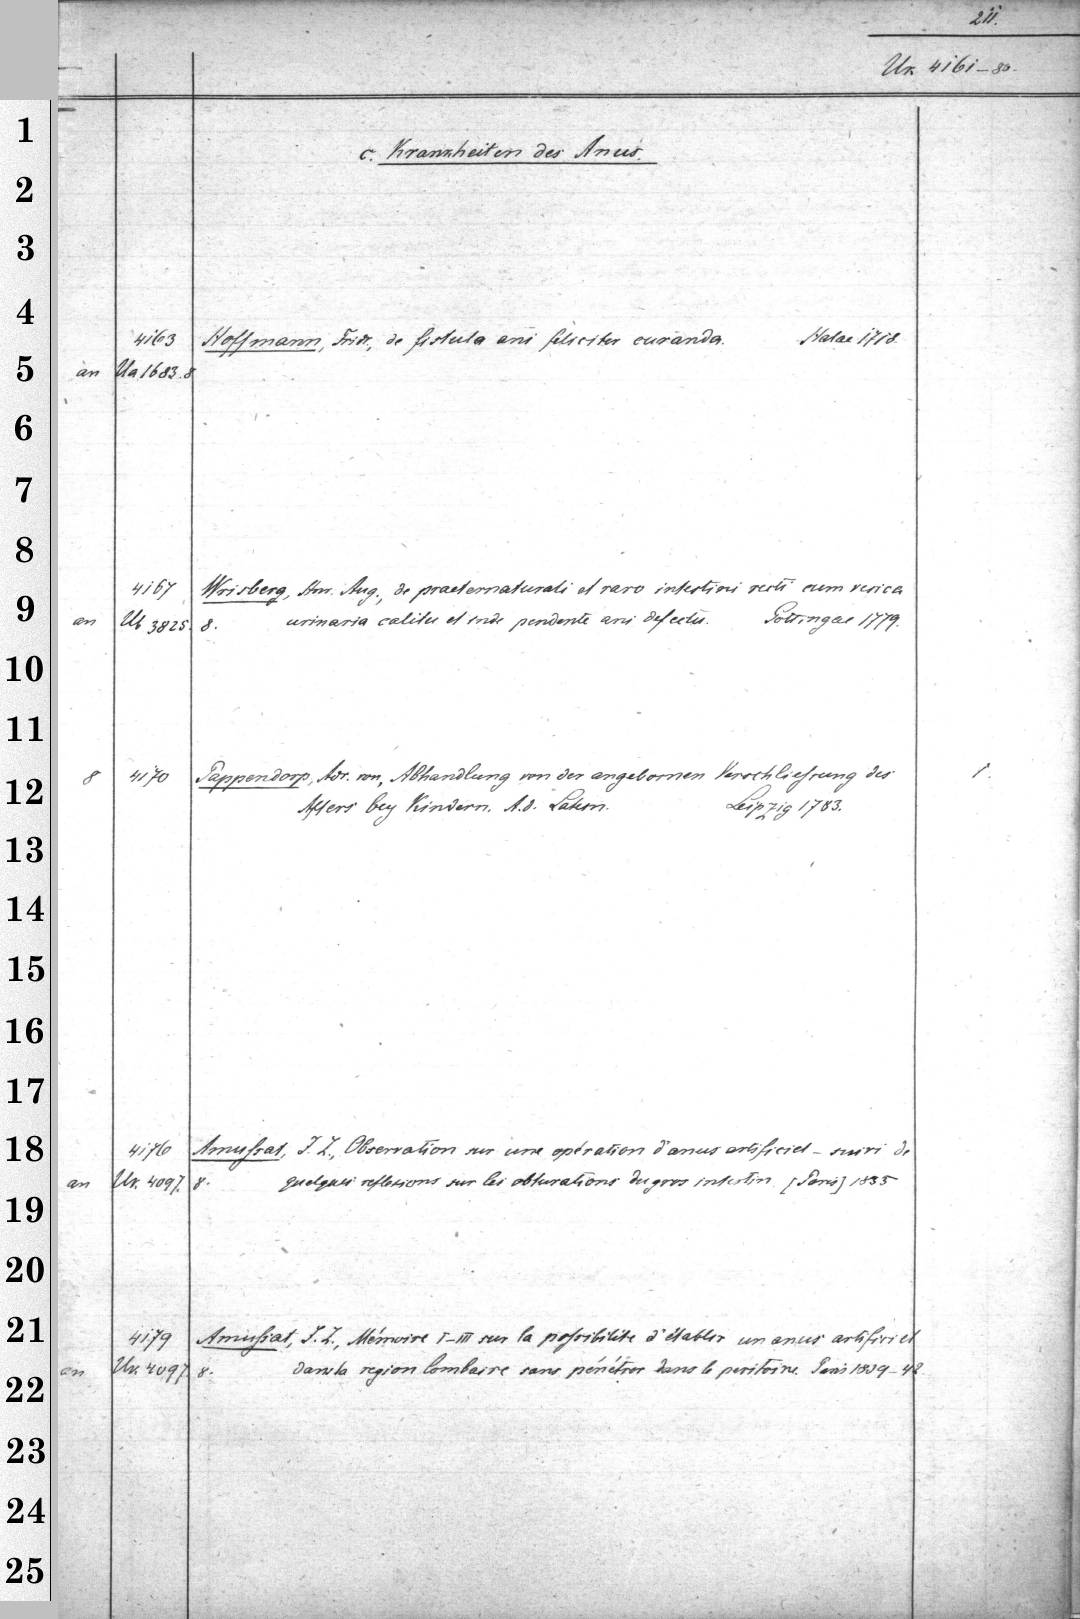 211.
Ux 4161-80.
1
c. Krankheiten des Anus.
2
3
4
4163 Hoffmann, Fridr., de fistula ani feliciter curanda. Halae 1718.
5
an Ua 1683. 8
6
7
8
4167 Wrisberg, Hnr. Aug., de praeternaturali et raro intestini recti cum vesica
9
an Ub 3825. 8. urinaria coalitu et inde pendente ani defectu. Gottingae 1779.
10
11
8 4170 Pappendorp, Adr. von, Abhandlung von der angebornen Verschliessung des 1.
12
Afters bey Kindern. A. d. Latein. Leipzig 1783.
13
14
15
16
17
18
4176 Amussat, J. Z., Observation sur une opération d'anus artificiel - suivi de
an Ux. 4097. 8. quelques reflexions sur les obturations du gros intestin. [Paris] 1835
19
20
21
4179 Amussat, J. Z., Mémoire I-III sur la possibilité d'établir un anus artificiel
an Ux. 4097. 8. dans la region lombaire sans pénétrer dans le peritoine. Paris 1839-42.
22
23
24
25